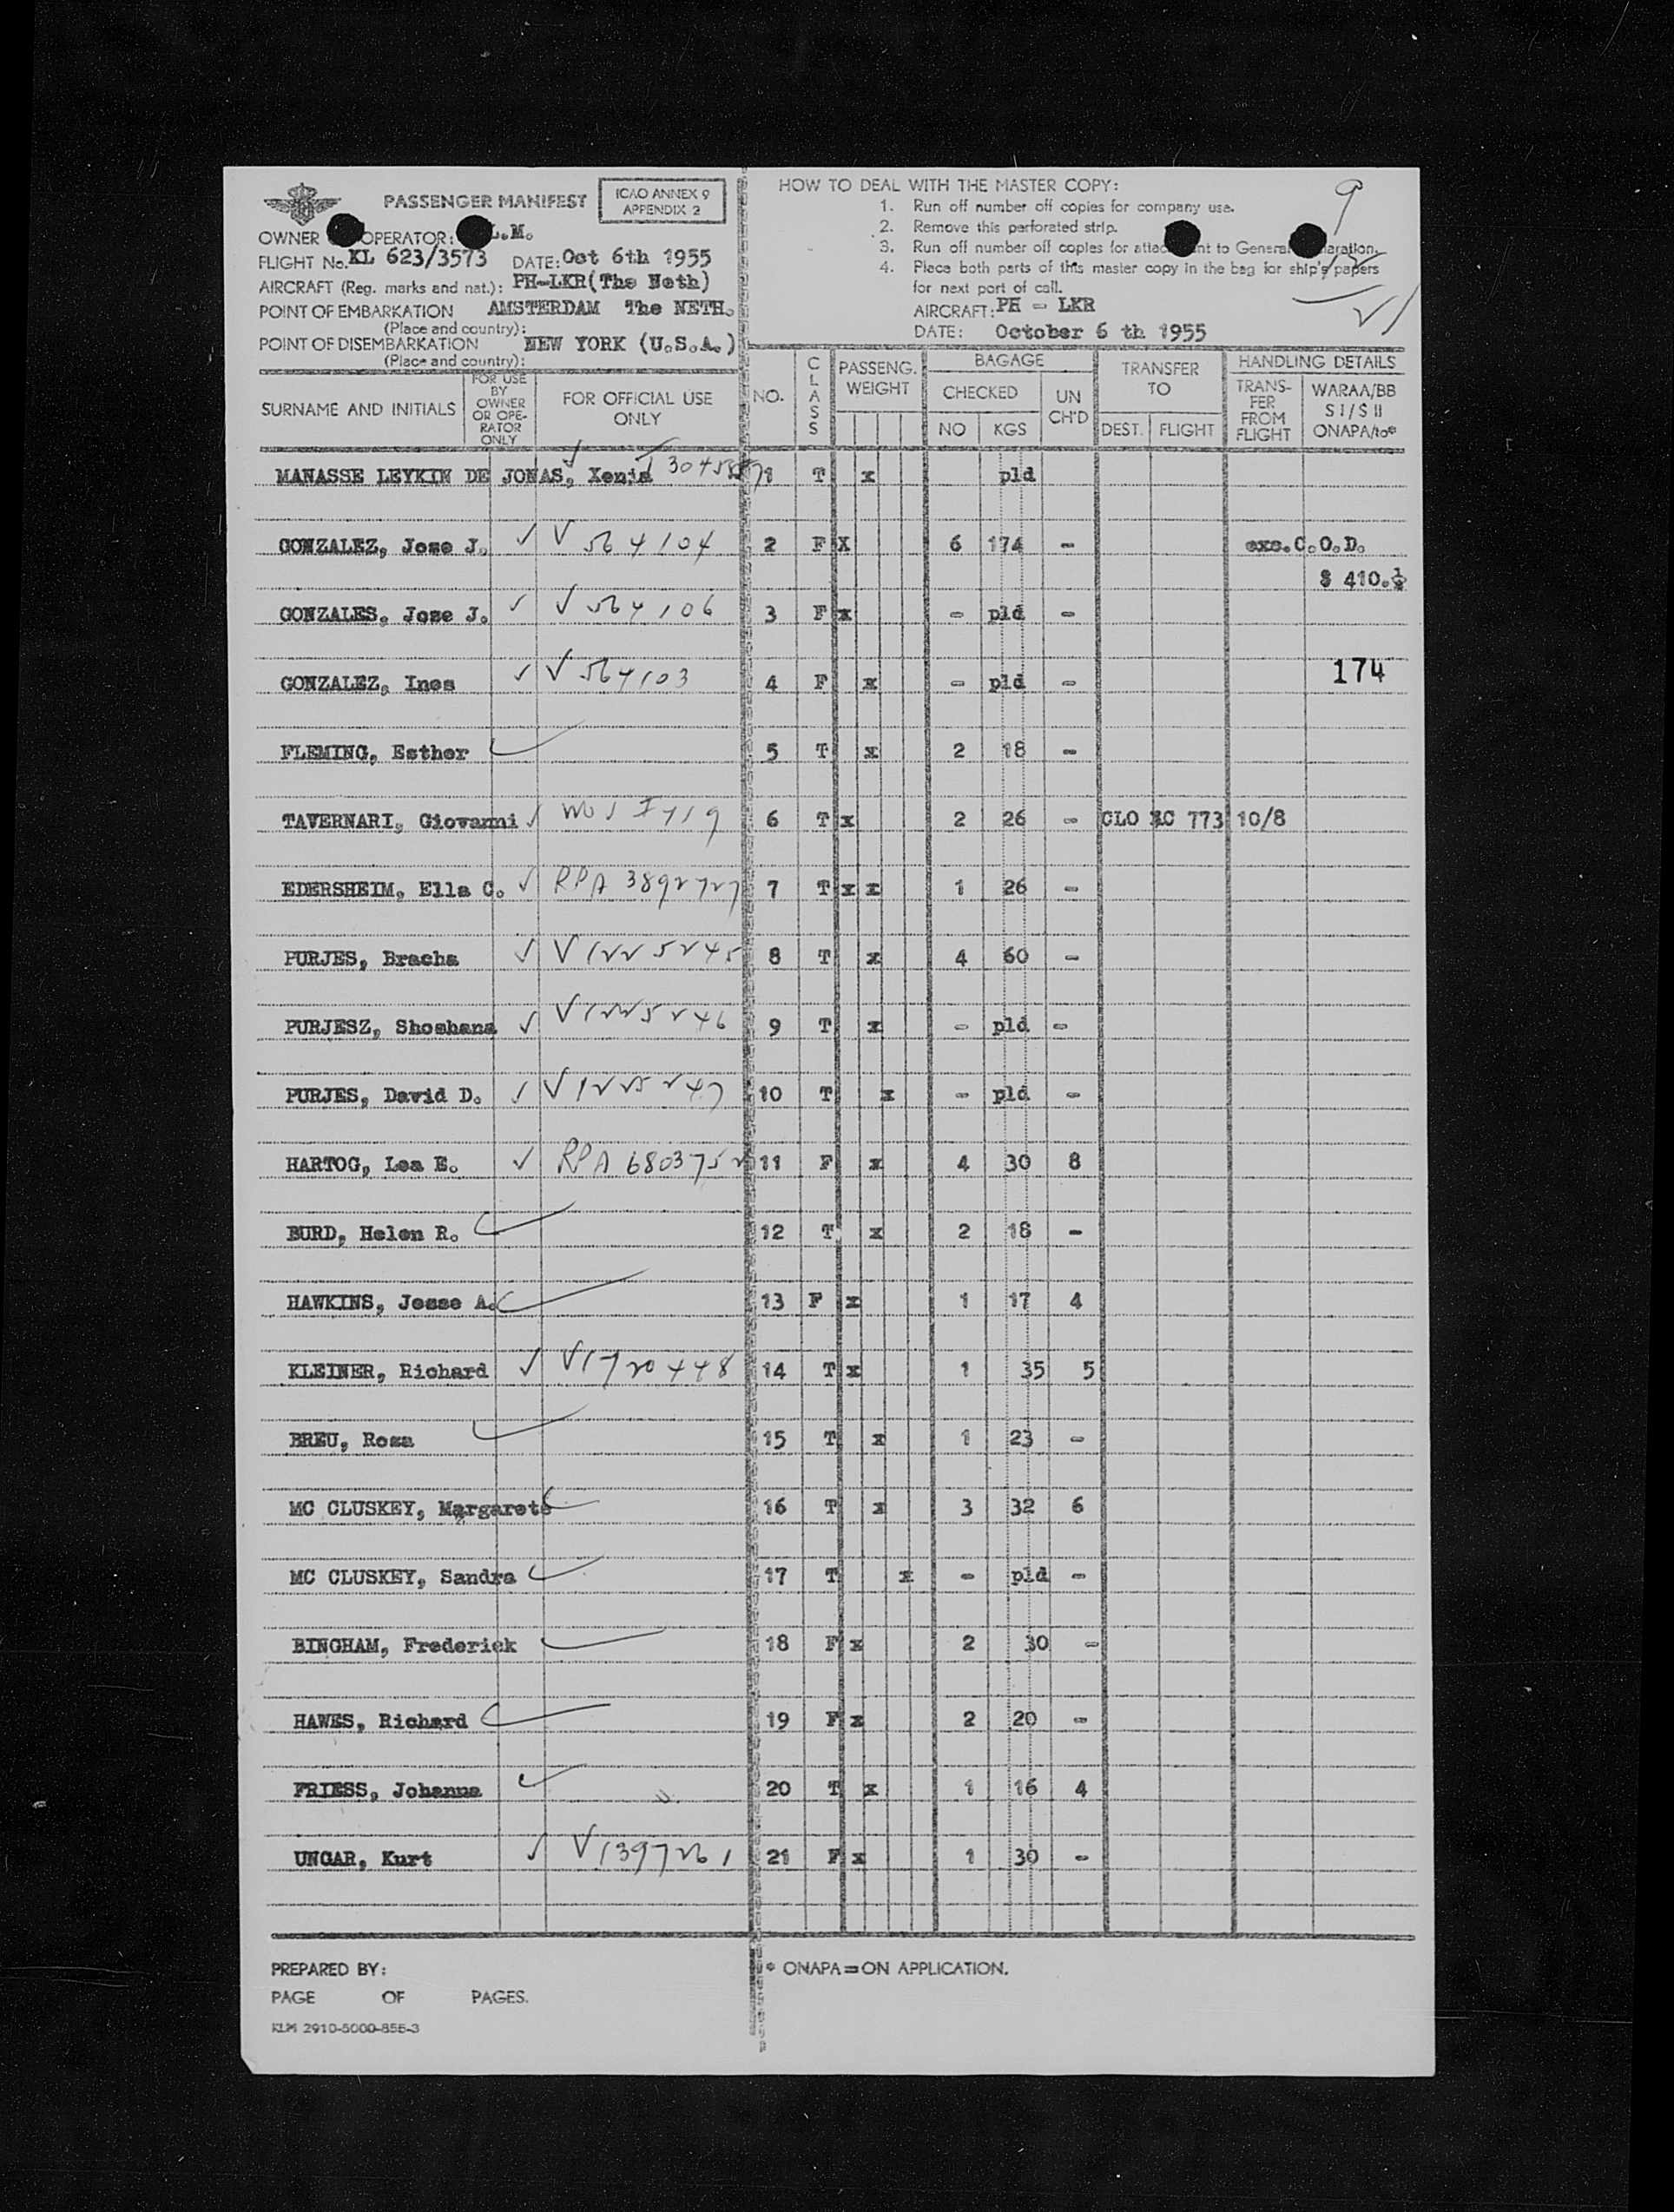 PASSENGER MANIFEST
ICAO ANNEX 9
APPENDIX 2
OWNER OPERATOR: L.M.
FLIGHT No. KL 623/3573 DATE: Oct 6th 1955
AIRCRAFT (Reg. marks and nat.): PH-LKR(The Neth)
POINT OF EMBARKATION AMSTERDAM The NETH.
(Place and country):
POINT OF DISEMBARKATION NEW YORK (U.S.A.)
(Place and country):
HOW TO DEAL WITH THE MASTER COPY:
1. Run off number off copies for company use.
2. Remove this perforated strip.
3. Run off number off copies for nt to General
4. Place both parts of this master copy in the bag for ship's papers
for next port of call.
AIRCRAFT: PH - LKR
DATE: October 6 th 1955
9
SURNAME AND INITIALS
FOR USE BY OWNER OR OPE-RATOR ONLY
FOR OFFICIAL USE ONLY
NO. CLASS PASSENG. WEIGHT BAGAGE CHECKED NO KGS UN CH'D
TRANSFER TO DEST. FLIGHT
HANDLING DETAILS TRANS-FER FROM FLIGHT WARAA/BB S I/S II ONAPA/to*
MANASSE LEYKIN DE JONAS, Xenia 1 T x pld
GONZALEZ, Jose J. ✓ V 564104 2 F X 6 174 - exs.C.O.D.
$ 410.½
GONZALES, Jose J. ✓ V 564106 3 F x - pld -
GONZALEZ, Ines ✓ V 564103 4 F x - pld - 174
FLEMING, Esther ✓ 5 T x 2 18 -
TAVERNARI, Giovanni ✓ 6 T x 2 26 - CLO 773 10/8
EDERSHEIM, Ella C. ✓ RPA 3892727 7 T x x 1 26 -
PURJES, Bracha ✓ V1225245 8 T x 4 60 -
PURJESZ, Shoshana ✓ V1225246 9 T x - pld -
PURJES, David D. ✓ V1225247 10 T x - pld -
HARTOG, Lea E. ✓ RPA 6803752 11 F x 4 30 8
BURD, Helen R. ✓ 12 T x 2 18 -
HAWKINS, Jesse A. ✓ 13 F x 1 17 4
KLEINER, Richard ✓ V1720448 14 T x 1 35 5
BREU, Rosa ✓ 15 T x 1 23 -
MC CLUSKEY, Margarete ✓ 16 T x 3 32 6
MC CLUSKEY, Sandra ✓ 17 T x - pld -
BINGHAM, Frederick ✓ 18 F x 2 30 -
HAWES, Richard ✓ 19 F x 2 20 -
FRIESS, Johanna ✓ 20 T x 1 16 4
UNGAR, Kurt ✓ V1397261 21 F x 1 30 -
PREPARED BY:
PAGE OF PAGES.
KLM 2910-5000-855-3
* ONAPA=ON APPLICATION.